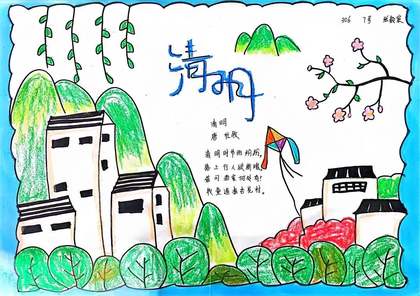 306 7号
清明
清明
唐 杜牧
清明时节雨纷纷,
路上行人欲断魂。
借问酒家何处有?
牧童遥指杏花村。